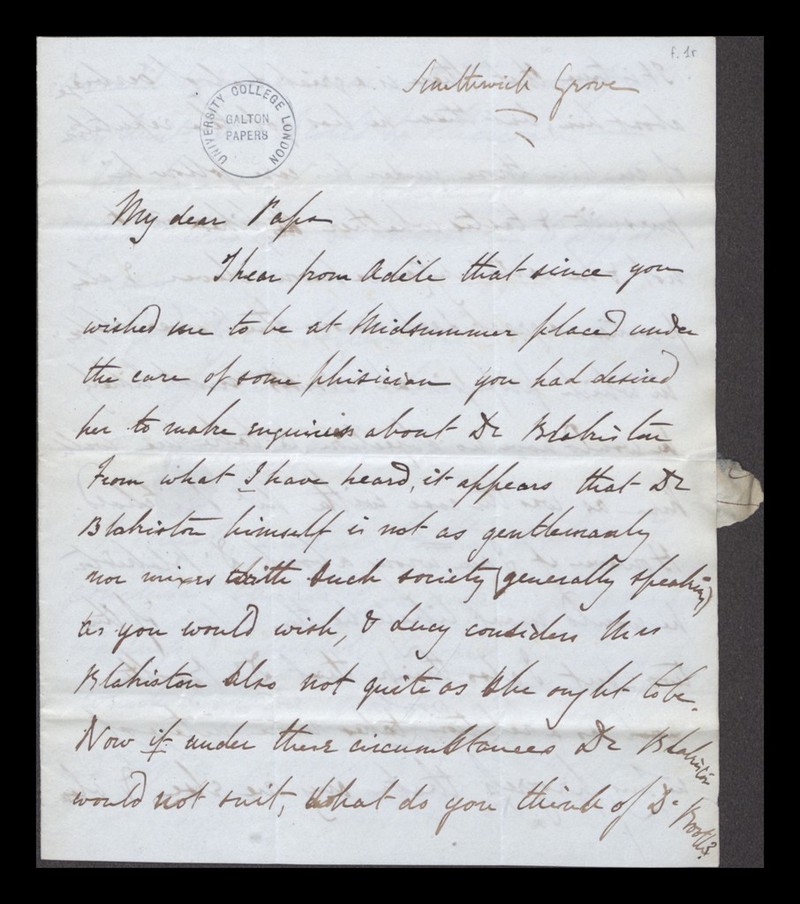 f. 1r
Smethwick Grove
UNIVERSITY COLLEGE LONDON
GALTON
PAPERS
My dear Papa
I hear from Adèle that since you
wished me to be at Midsummer placed under
the care of some phisician you had desired
her to make enquiries about Dr Blakiston
From what I have heard, it appears that Dr
Blakiston himself is not as gentlemanly
nor mixes with such society (generally speaking)
as you would wish, & Lucy considers Mrs
Blakiston also not quite as she ought to be.
Now if under these circumstances Dr Blakiston
would not suit, what do you think of Dr Booth?